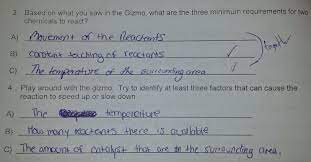 3. Based on what you saw in the Gizmo, what are the three minimum requirements for two
chemicals to react?
A) Movement of the Reactants
B) constant touching of reactants
C) The temperature of the surrounding area
4. Play around with the gizmo. Try to identify at least three factors that can cause the
reaction to speed up or slow down
A) The temperature
B) How many reactants there is available
C) The amount of catalyst that are in the surrounding area.